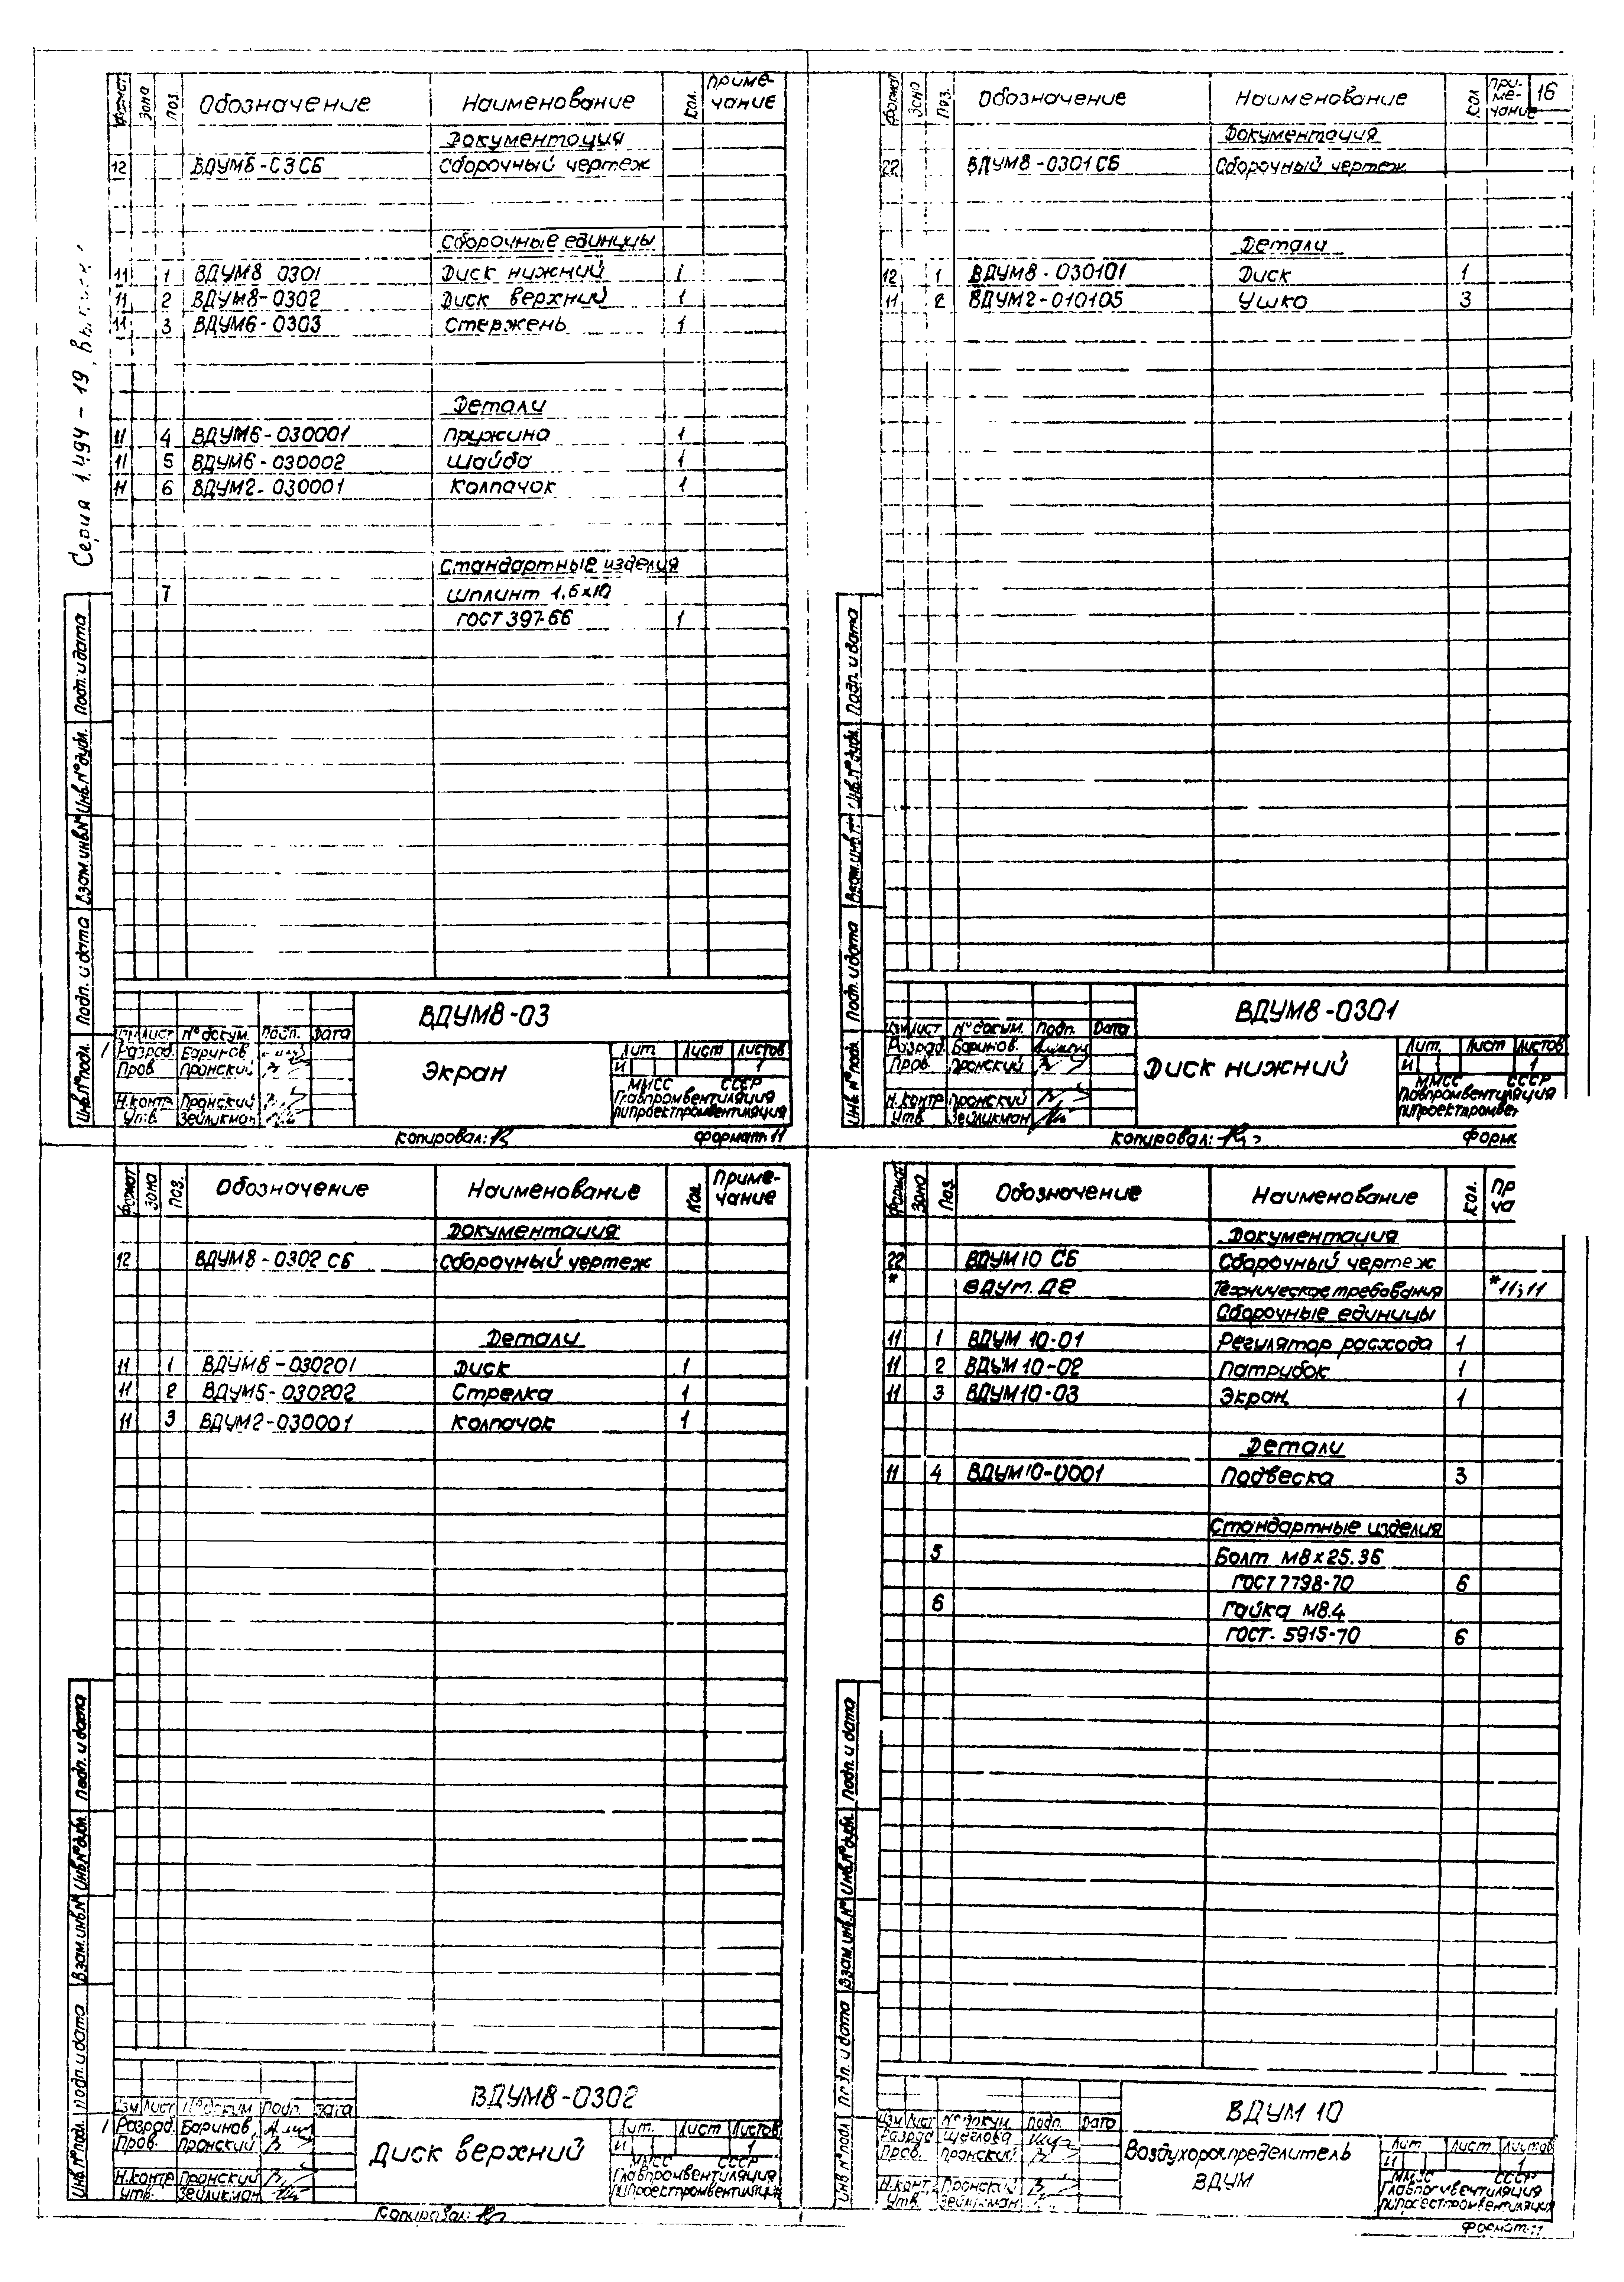 Серия 1.494-19,
Формат Зона Поз. Обозначение Наименование Кол. Приме-
чание
Документация
12 Сборочный чертеж
Сборочные единицы
11 1 ВДУМ8 0301 Диск нижний 1
11 2 ВДУМ8-0302 Диск верхний 1
11 3 ВДУМ6-0303 Стержень 1
Детали
11 4 ВДУМ6-030001 Пружина 1
11 5 ВДУМ6-030002 Шайба 1
11 6 ВДУМ2-030001 Колпачок 1
Стандартные изделия
7 Шплинт 1,6х10
ГОСТ 397-66 1
Инв.№подл. Подп. и дата Взам.инв.№ Инв.№дубл. Подп. и дата
ВДУМ8-03
Изм Лист №докум. Подп. Дата
Разраб. Баринов
Пров. Пронский
Н.контр Пронский
Утв. Зейликман
Экран
Лит. Лист Листов
И 1
ММСС СССР
Главпромвентиляция
Гипроектпромвентиляция
Копировал: Формат 11
16
Формат Зона Поз. Обозначение Наименование Кол При-
ме-
чание
Документация
22 ВДУМ8-0301СБ Сборочный чертеж
Детали
12 1 ВДУМ8-030101 Диск 1
11 2 ВДУМ2-010105 Ушко 3
Инв №подл. Подп. и дата Взам.инв.№ Инв.№дубл Подп. и дата
ВДУМ8-0301
Изм Лист №докум. Подп. Дата
Разраб. Баринов.
Пров. Пронский
Н.контр Пронский
Утв. Зейликман
Диск нижний
Лит. Лист Листов
И 1 1
ММСС СССР
Главпромвентиляция
Гипроектпромвен
Копировал: Форм
Формат Зона Поз. Обозначение Наименование Кол. Приме-
чание
Документация
12 ВДУМ8-0302 СБ Сборочный чертеж
Детали
11 1 ВДУМ8-030201 Диск 1
11 2 ВДУМ5-030202 Стрелка 1
11 3 ВДУМ2-030001 Колпачок 1
Инв №подл. Подп. и дата Взам.инв.№ Инв.№дубл. Подп. и дата
ВДУМ8-0302
Изм Лист №докум Подп. Дата
Разраб. Баринов
Пров. Пронский
Н.контр Пронский
Утв. Зейликман
Диск верхний
Лит. Лист Листов
И 1
ММСС СССР
Главпромвентиляция
Гипроектпромвентиляция
Копировал:
Формат Зона Поз. Обозначение Наименование Кол. Пр
ча
Документация
22 ВДУМ10 СБ Сборочный чертеж
* ВДУМ.Д2 Технические требования *11;11
Сборочные единицы
11 1 ВДУМ 10-01 Регулятор расхода 1
11 2 ВДУМ 10-02 Патрубок 1
11 3 ВДУМ10-03 Экран 1
Детали
11 4 ВДУМ10-0001 Подвеска 3
Стандартные изделия
5 Болт М8х25.36
ГОСТ 7798-70 6
6 Гайка М8.4
ГОСТ-5915-70 6
Инв №подл Подп. и дата Взам.инв.№ Инв.№дубл. Подп. и дата
ВДУМ 10
Изм Лист №докум. Подп. Дата
Разраб Щеглова
Пров. Пронский
Н.контр Пронский
Утв. Зейликман
Воздухораспределитель
ВДУМ
Лит Лист Листов
И 1
ММСС СССР
Главпромвентиляция
Гипроектпромвентиляция
Формат 11